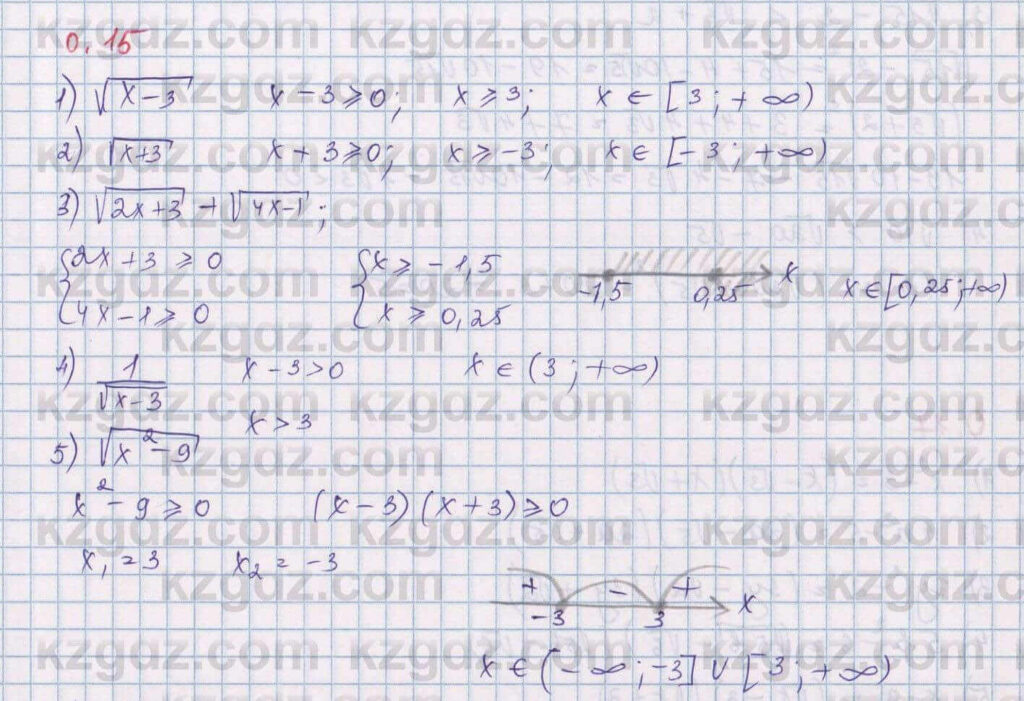 0.15
1) √(x-3) x-3≥0; x≥3; x∈[3;+∞)
2) √(x+3) x+3≥0; x≥-3; x∈[-3;+∞)
3) √(2x+3) + √(4x-1);
{2x+3≥0 {x≥-1,5 -1,5 0,25 x x∈[0,25;+∞)
4x-1≥0 x≥0,25
4) 1/√(x-3) x-3>0 x∈(3;+∞)
x>3
5) √(x²-9)
x²-9≥0 (x-3)(x+3)≥0
x₁=3 x₂=-3
+ - +
-3 3 x
x∈(-∞;-3]∪[3;+∞)
kzgdz.com